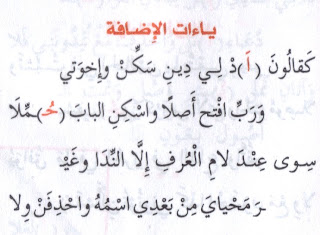 ياءات الإضافة
كَقالُونَ (أَ)دْ لِي دِينِ سَكِّنْ وَإخوَتي
وَرَبِّ افْتح أَصْلًا واسْكِنِ البابَ (حُـ)ـمِّلَا
سِوى عِنْدَ لامِ الْعُرفِ إِلَّا النِّدَا وَغَيْـ
ـرَ مَحْيايَ مِنْ بَعْدِي اسْمُهُ واحْذِفَنْ وِلا